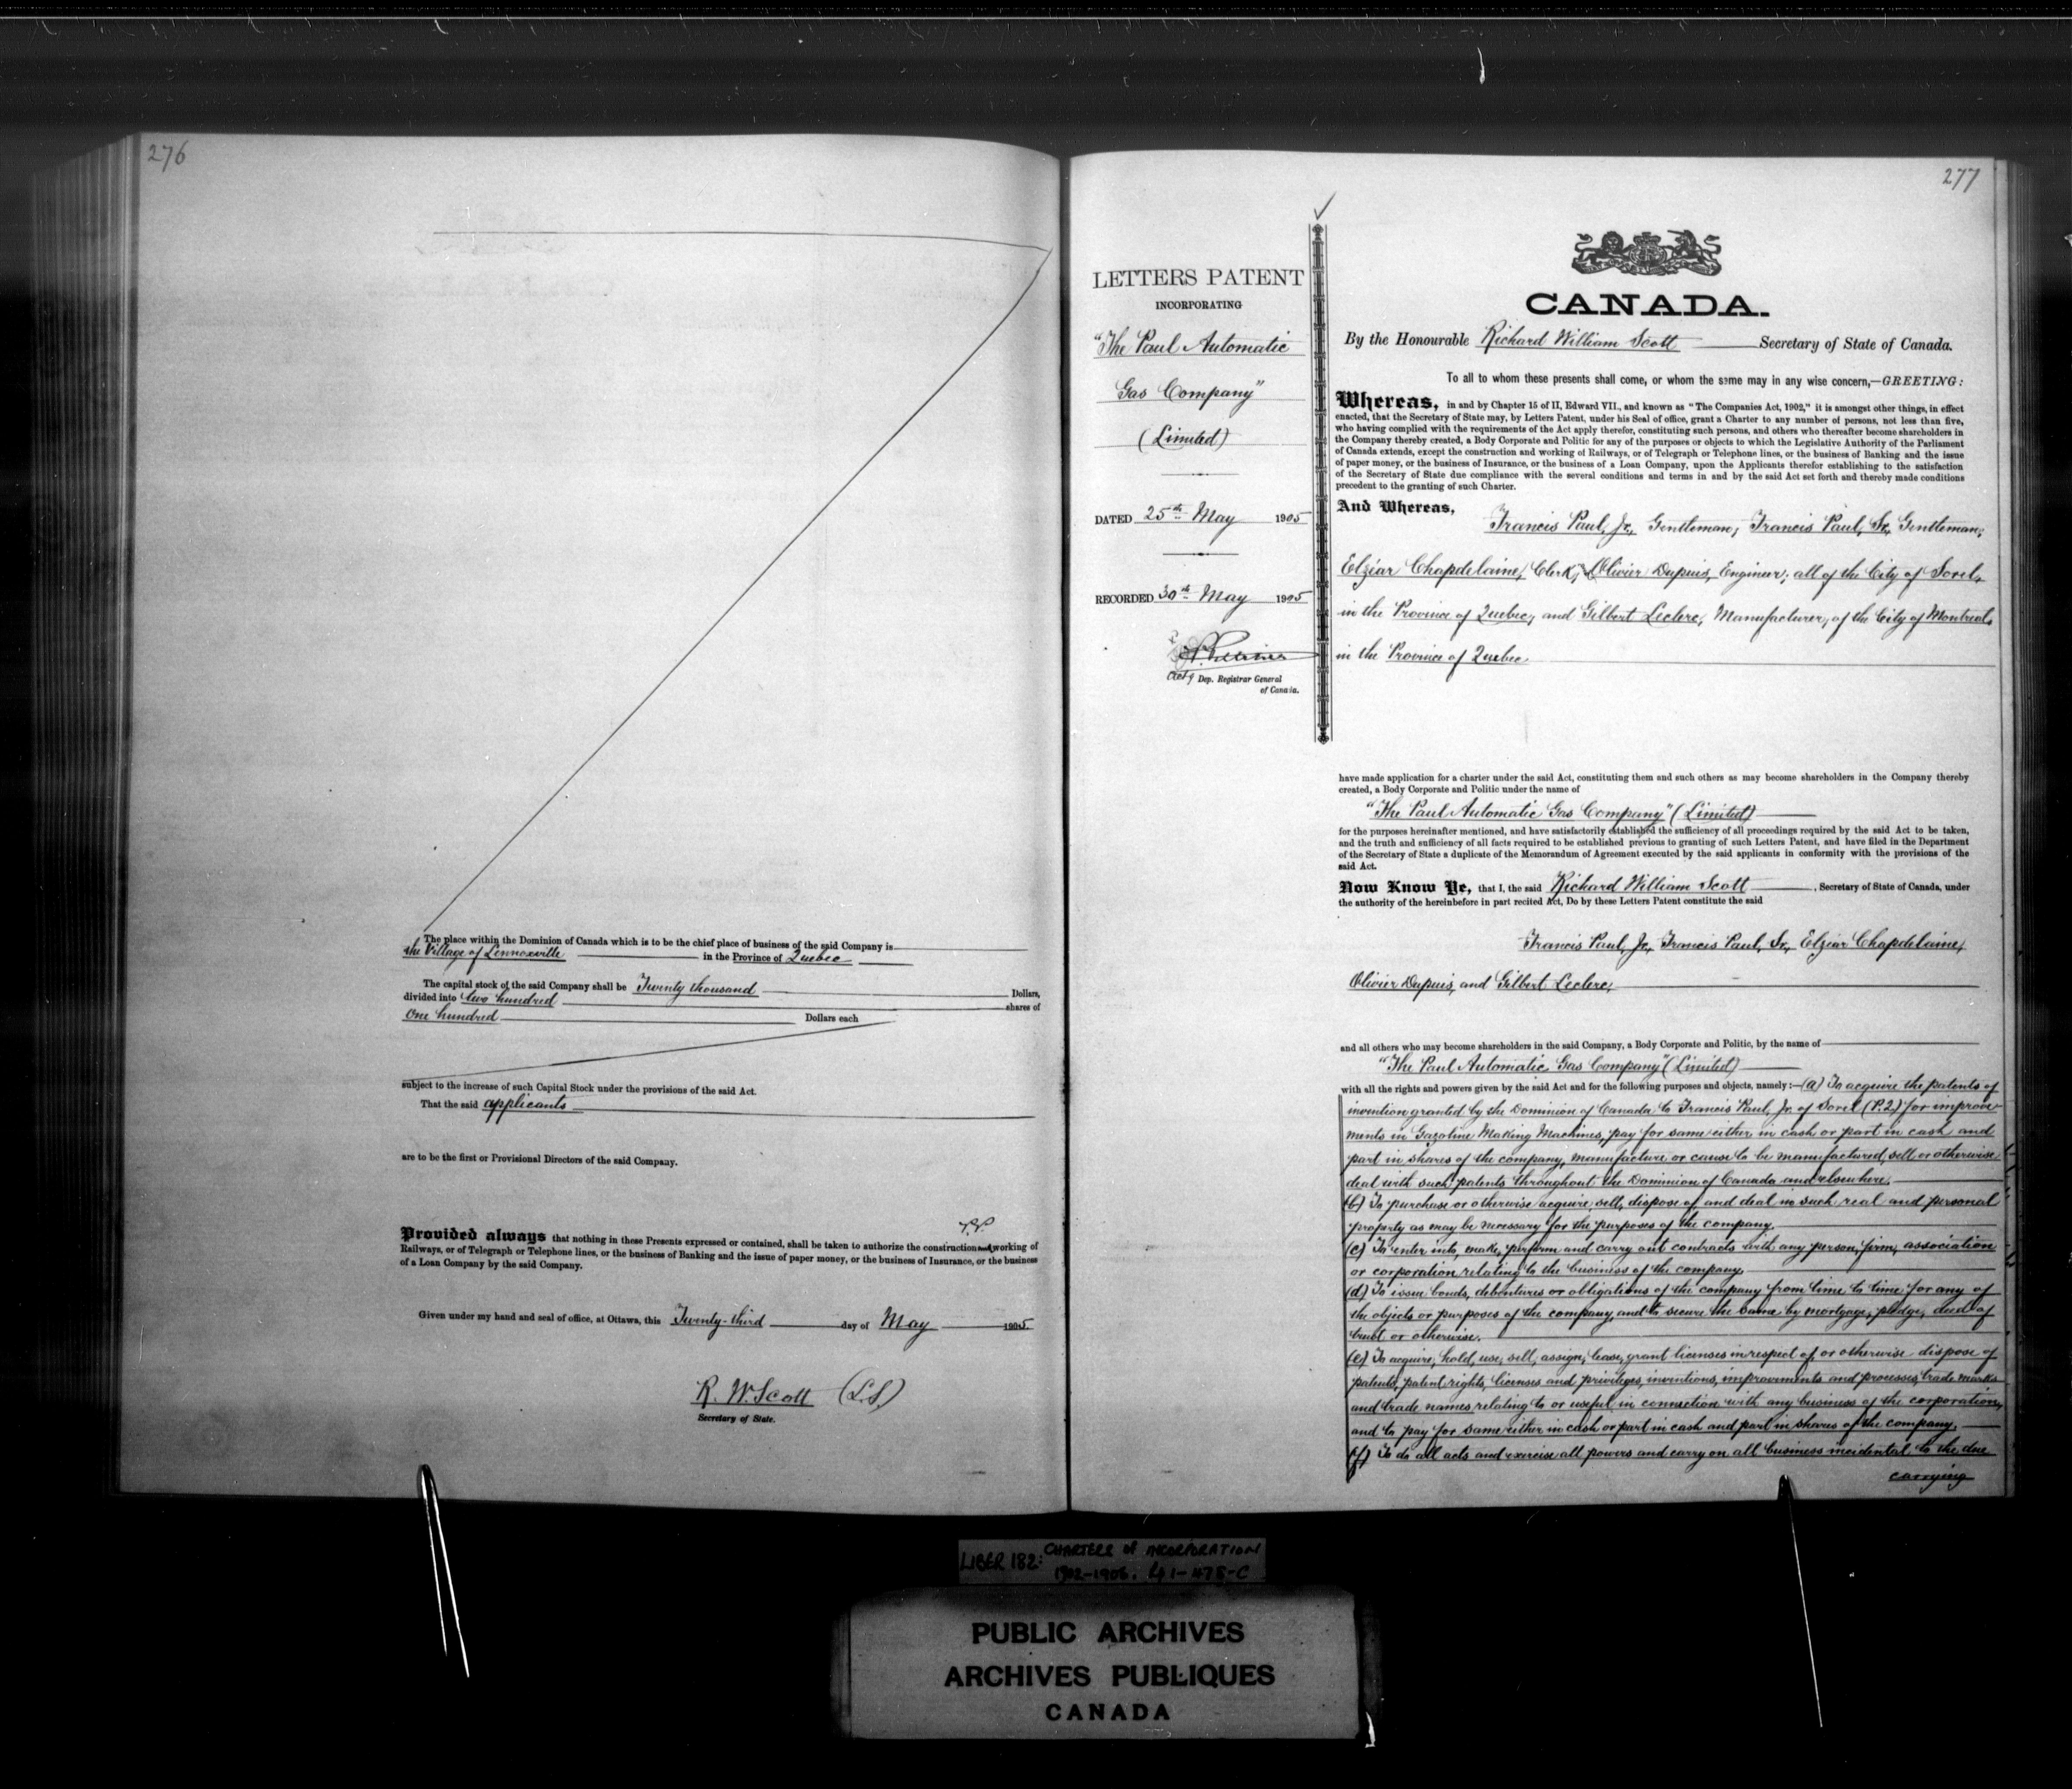 276
The place within the Dominion of Canada which is to be the chief place of business of the said Company is
the Village of Lennoxville in the Province of Quebec
The capital stock of the said Company shall be Twenty thousand Dollars,
divided into two hundred shares of
One hundred Dollars each
subject to the increase of such Capital Stock under the provisions of the said Act.
That the said applicants
are to be the first or Provisional Directors of the said Company.
Provided always that nothing in these Presents expressed or contained, shall be taken to authorize the construction and working of
Railways, or of Telegraph or Telephone lines, or the business of Banking and the issue of paper money, or the business of Insurance, or the business
of a Loan Company by the said Company.
Given under my hand and seal of office, at Ottawa, this Twenty-third day of May 1905.
R. W Scott (L.S.)
Secretary of State.
277
LETTERS PATENT
INCORPORATING
"The Paul Automatic
Gas Company"
(Limited)
DATED 25th May 1905
RECORDED 30th May 1905
Actg Dep. Registrar General
of Canada.
CANADA.
By the Honourable Richard William Scott Secretary of State of Canada.
To all to whom these presents shall come, or whom the same may in any wise concern,—GREETING:
Whereas, in and by Chapter 15 of II, Edward VII., and known as "The Companies Act, 1902," it is amongst other things, in effect
enacted, that the Secretary of State may, by Letters Patent, under his Seal of office, grant a Charter to any number of persons, not less than five,
who having complied with the requirements of the Act apply therefor, constituting such persons, and others who thereafter become shareholders in
the Company thereby created, a Body Corporate and Politic for any of the purposes or objects to which the Legislative Authority of the Parliament
of Canada extends, except the construction and working of Railways, or of Telegraph or Telephone lines, or the business of Banking and the issue
of paper money, or the business of Insurance, or the business of a Loan Company, upon the Applicants therefor establishing to the satisfaction
of the Secretary of State due compliance with the several conditions and terms in and by the said Act set forth and thereby made conditions
precedent to the granting of such Charter.
And Whereas,
Francis Paul, Jr., Gentleman, Francis Paul, Sr., Gentleman,
Elzéar Chapdelaine, Clerk, Olivier Dupuis, Engineer; all of the City of Sorel,
in the Province of Quebec, and Gilbert Leclerc, Manufacturer, of the City of Montreal,
in the Province of Quebec
have made application for a charter under the said Act, constituting them and such others as may become shareholders in the Company thereby
created, a Body Corporate and Politic under the name of
"The Paul Automatic Gas Company" (Limited)
for the purposes hereinafter mentioned, and have satisfactorily established the sufficiency of all proceedings required by the said Act to be taken,
and the truth and sufficiency of all facts required to be established previous to granting of such Letters Patent, and have filed in the Department
of the Secretary of State a duplicate of the Memorandum of Agreement executed by the said applicants in conformity with the provisions of the
said Act.
Now Know Ye, that I, the said Richard William Scott, Secretary of State of Canada, under
the authority of the hereinbefore in part recited Act, Do by these Letters Patent constitute the said
Francis Paul, Jr., Francis Paul, Sr., Elzéar Chapdelaine,
Olivier Dupuis, and Gilbert Leclerc,
and all others who may become shareholders in the said Company, a Body Corporate and Politic, by the name of
"The Paul Automatic Gas Company" (Limited)
with all the rights and powers given by the said Act and for the following purposes and objects, namely:—(a) To acquire the patents of
invention granted by the Dominion of Canada to Francis Paul, Jr. of Sorel (P.2.) for improve-
ments in Gazoline Making Machines, pay for same either in cash or part in cash and
part in shares of the company, manufacture or cause to be manufactured, sell or otherwise
deal with such patents throughout the Dominion of Canada and elsewhere.
(b) To purchase or otherwise acquire, sell, dispose of and deal in such real and personal
property as may be necessary for the purposes of the company.
(c) To enter into, make, perform and carry out contracts with any person, firm, association
or corporation relating to the business of the company.
(d) To issue bonds, debentures or obligations of the company from time to time for any of
the objects or purposes of the company, and to secure the same by mortgage, pledge, deed of
trust or otherwise.
(e) To acquire, hold, use, sell, assign, lease, grant licenses in respect of, or otherwise dispose of
patents, patent rights, licenses and privileges, inventions, improvements and processes, trade marks
and trade names relating to or useful in connection with any business of the corporation,
and to pay for same either in cash or part in cash and part in shares of the company.
(f) To do all acts and exercise all powers and carry on all business incidental to the due
carrying
LIBER 182: CHARTERS of INCORPORATION
1902-1906.
PUBLIC ARCHIVES
ARCHIVES PUBLIQUES
CANADA